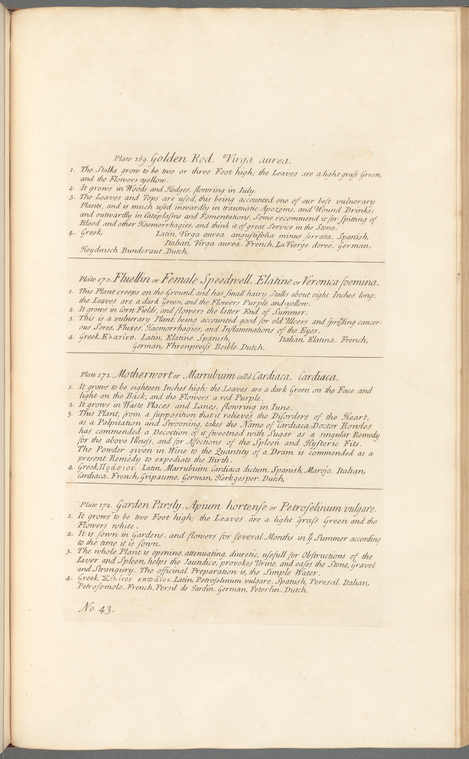 Plate 169. Golden Rod. Virga aurea.
1. The Stalks grow to be two or three Foot high; the Leaves are a light grass Green,
and the Flowers yellow.
2. It grows in Woods and Hedges, flowring in July.
3. The Leaves and Tops are used, this being accounted one of our best vulnerary
Plants, and is much used inwardly in traumatic Apozems, and Wound Drinks;
and outwardly in Cataplasms and Fomentations. Some recommend it for Spitting of
Blood and other Haemorrhagies, and think it of great Service in the Stone.
4. Greek, Latin, Virga aurea angustifolia minus serrata. Spanish,
Italian, Virga aurea. French, La Vierge doreo. German,
Heydnisch Bundcraut. Dutch,
Plate 170. Fluellin or Female Speedwell. Elatine or Veronica foemina.
1. This Plant creeps on the Ground, and has small hairy Stalks about eight Inches long;
the Leaves are a dark Green, and the Flowers Purple and yellow.
2. It grows in Corn Fields, and flowers the latter End of Summer.
3. This is a vulnerary Plant being accounted good for old Ulcers and spreading cancer-
ous Sores, Fluxes, Haemorrhagies, and Inflamations of the Eyes.
4. Greek, Ἐλατίνη. Latin, Elatine. Spanish, Italian, Elatina. French,
German, Ehrenpreiss Beible. Dutch,
Plate 171. Motherwort or Marrubium called Cardiaca. Cardiaca.
1. It grows to be eighteen Inches high; the Leaves are a dark Green on the Face and
light on the Back, and the Flowers a red Purple.
2. It grows in Waste Places and Lanes, flowring in June.
3. This Plant, from a supposition that it relieves the Disorders of the Heart,
as a Palpitation and Swooning, takes the Name of Cardiaca. Doctor Bowles
has commended a Decoction of it sweetned with Sugar as a singular Remedy
for the above Illness, and for Affections of the Spleen and Hysteric Fits.
The Powder given in Wine to the Quantity of a Dram is commended as a
present Remedy to expediate the Birth.
4. Greek, Latin, Marrubium Cardiaca dictum. Spanish, Marojo. Italian,
Cardiaca. French, Gripaume. German, Hertzgesper. Dutch,
Plate 172. Garden Parsly. Apium hortense or Petroselinum vulgare.
1. It grows to be two Foot high; the Leaves are a light grass Green and the
Flowers white.
2. It is sown in Gardens, and flowers for several Months in ye Summer according
to the time it is sown.
3. The whole Plant is opening, attenuating, diuretic, usefull for Obstructions of the
Liver and Spleen, helps the Jaundice, provokes Urine, and eases the Stone, Gravel
and Strangury. The officinal Preparation is, the Simple Water.
4. Greek, Latin, Petroselinum vulgare. Spanish, Perescil. Italian,
Petrosomolo. French, Persil de Jardin. German, Peterlin. Dutch,
No. 43.